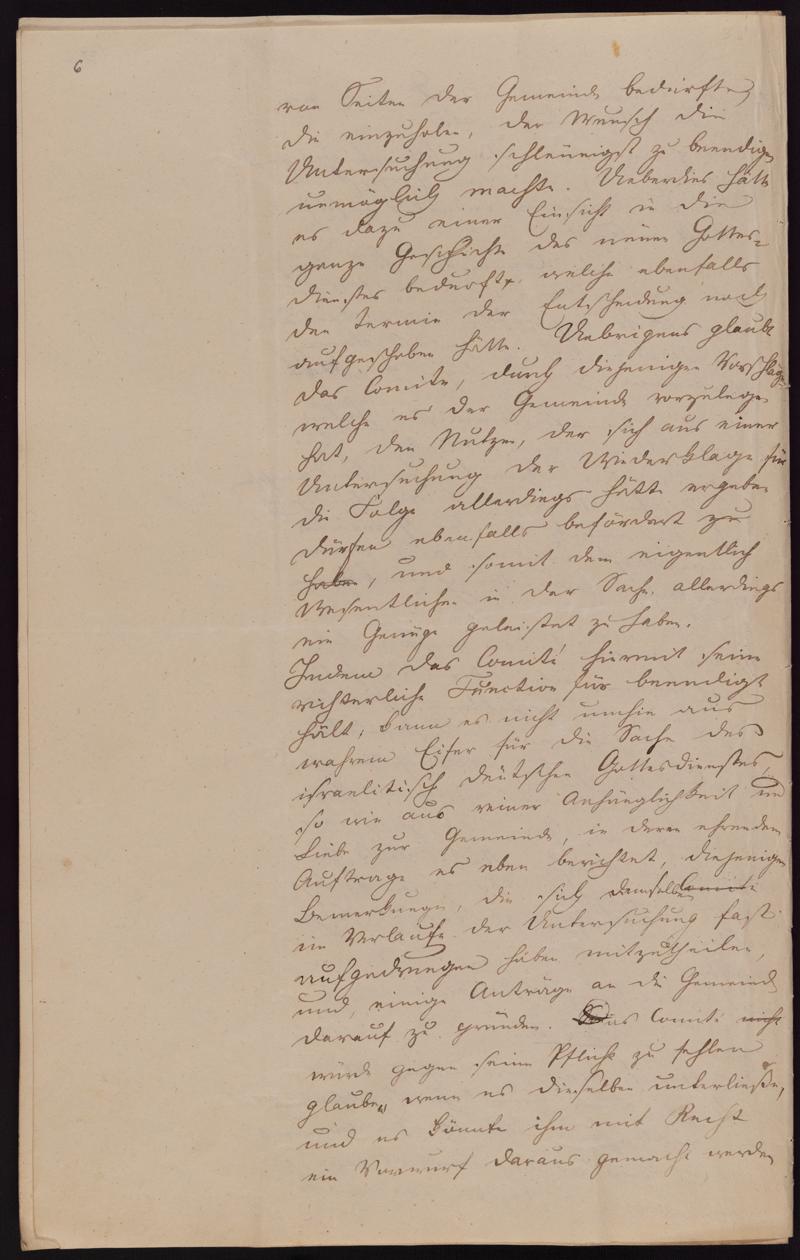 6
von Seiten der Gemeinde bedürfte,
die einzuholen, der Wunsch die
Untersuchung schleunigst zu beendigen
unmöglich machte. Ueberdies hätte
es dazu einer Einsicht in die
ganze Geschichte des neuen Gottes-
dienstes bedurft, welche ebenfalls
den Termin der Entscheidung noch
aufgeschoben hätte. Uebrigens glaubt
das Comite, durch diejenigen Vorschläge
welche es der Gemeinde vorzulegen
hat, den Nutzen, der sich aus einer
Untersuchung der Wiederklage für
die Folge allerdings hätte ergeben
dürfen ebenfalls befördert zu
haben, und somit dem eigentlich
Wesentlichen in der Sache allerdings
ein Genüge geleistet zu haben.
Indem das Comité hiermit seine
richterliche Function für beendigt
hält, kann es nicht umhin aus
wahrem Eifer für die Sache des
israelitisch deutschen Gottesdienstes,
so wie aus reiner Anhänglichkeit und
Liebe zur Gemeinde, in deren ehrendem
Auftrage es eben berichtet, diejenigen
Bemerkungen, die sich demselben Comité
im Verlaufe der Untersuchung fast
aufgedrungen haben mitzutheilen,
und einige Anträge an die Gemeinde
darauf zu gründen. Das Comité nicht
würde gegen seine Pflicht zu fehlen
glauben, wenn es dieselben unterließe,
und es könnte ihm mit Recht
ein Vorwurf daraus gemacht werden